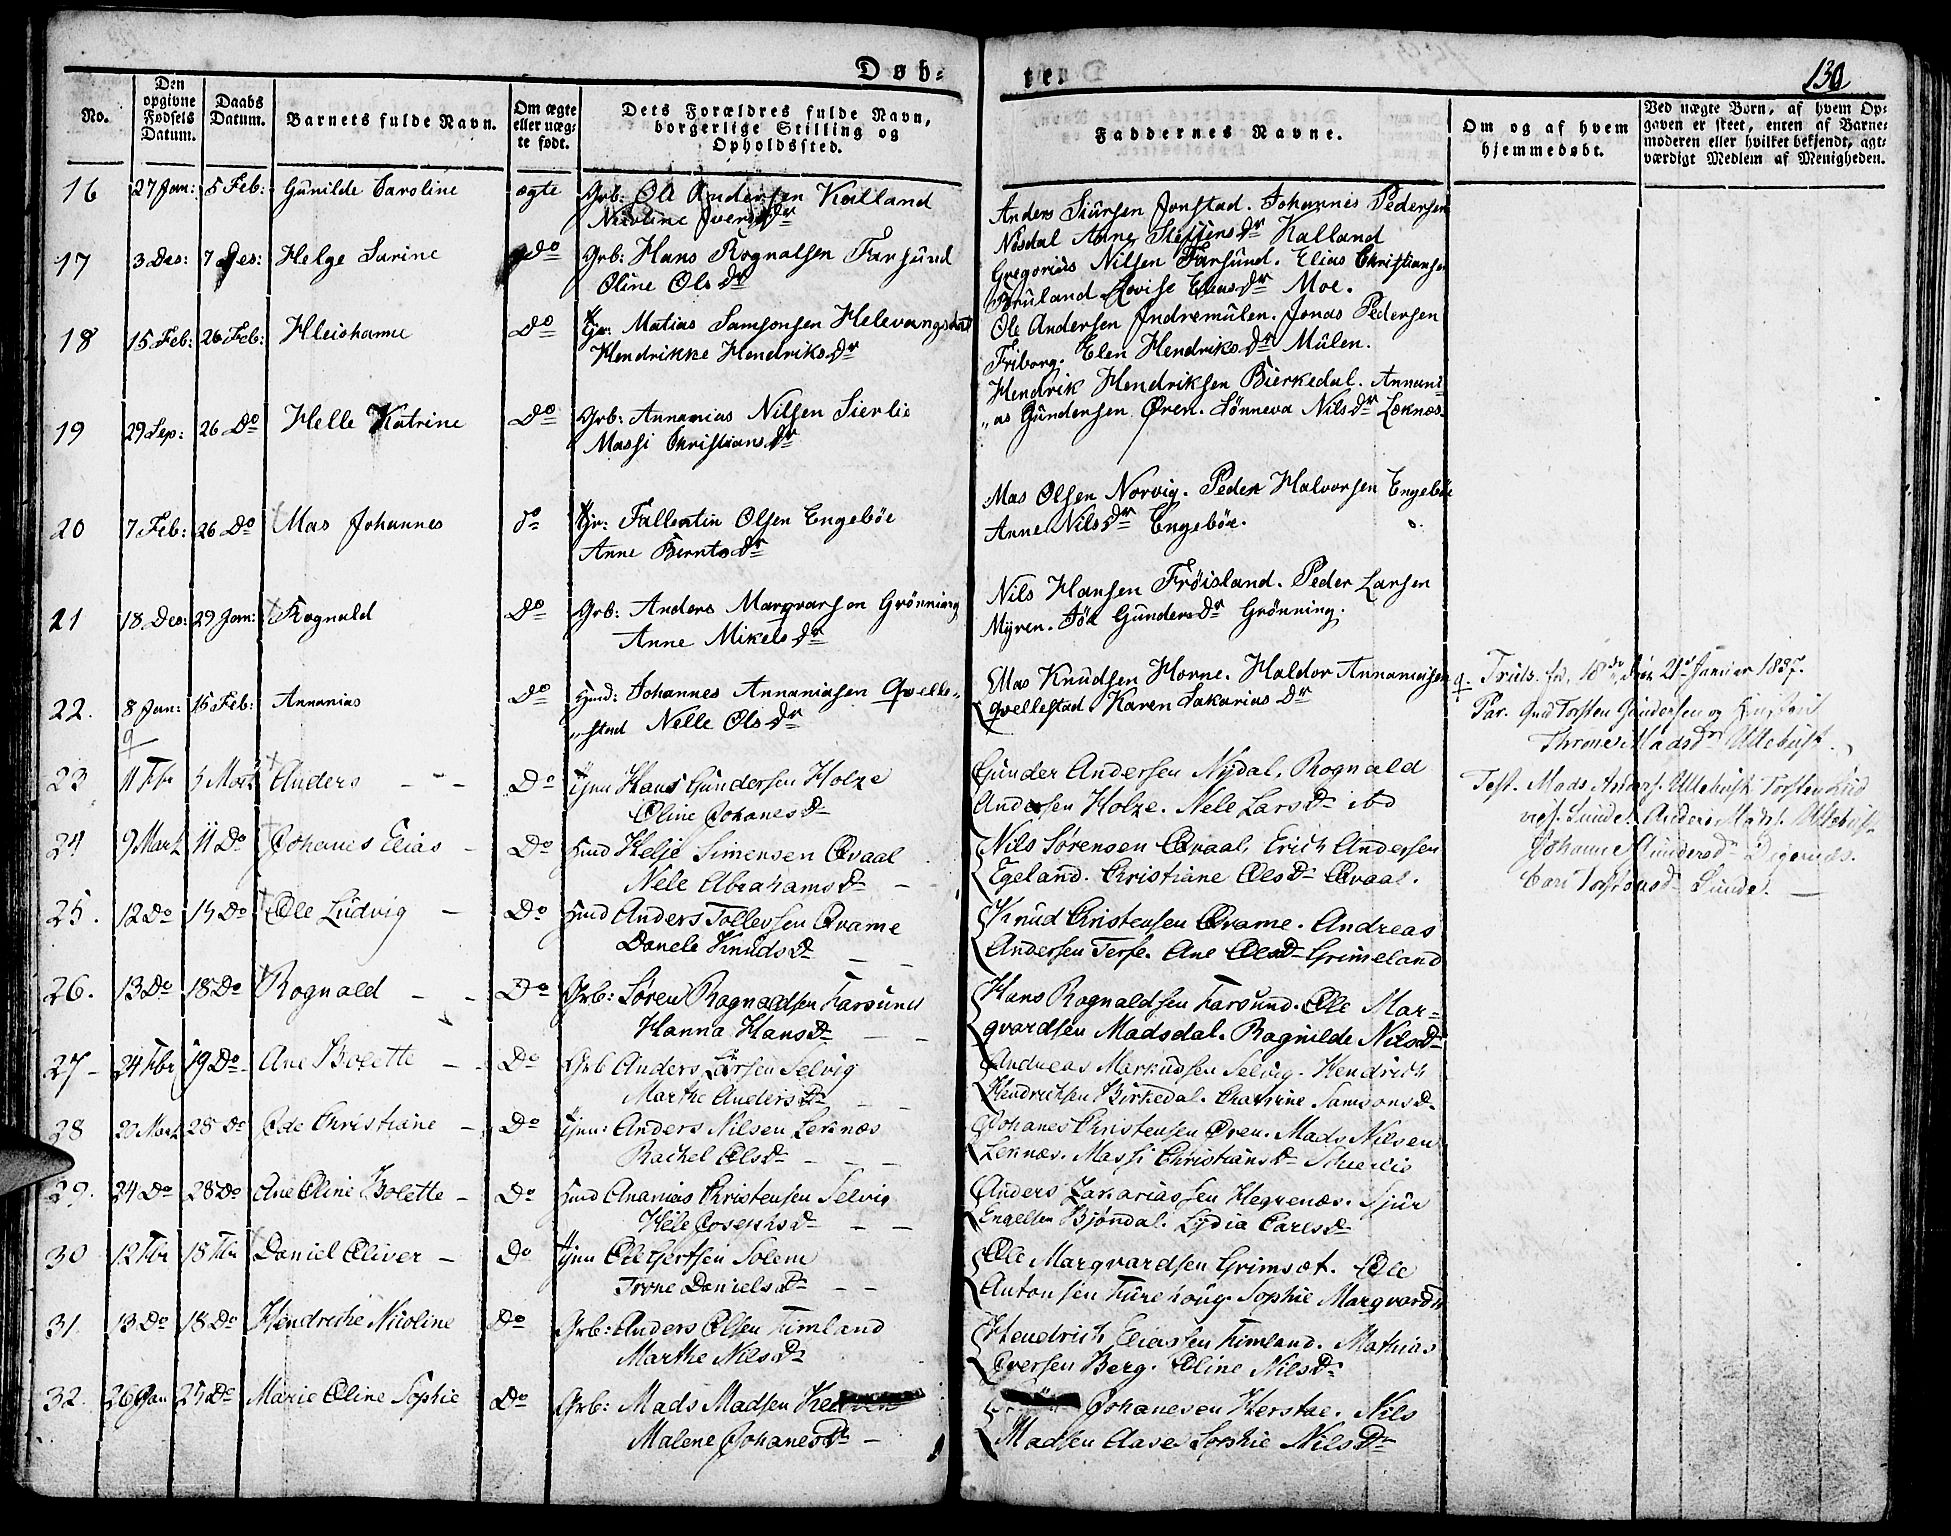 Døb-
ten
130
No.
Den opgivne Fødsels Datum.
Daabs Datum.
Barnets fulde Navn.
Om ægte eller uægte født.
Dets Forældres fulde Navn, borgerlige Stilling og Opholdssted.
Faddernes Navne.
Om og af hvem hjemmedøbt.
Ved uægte Børn, af hvem Opgaven er skeet, enten af Barnemoderen eller hvilket bekjendt, agtværdigt Medlem af Menigheden.
16 27 Jan: 5 Feb: Gunilde Caroline ægte Grb: Ole Andersen Kalland
Iversdr
Anders Siursen Jonstad. Johannes Pedersen
Nosdal Anne Steffensdr Kalland
17 3 Des: 7 Des: Helge Surine Do Grb: Hans Rognalsen Farsund
Oline Olsdr
Gregorius Nilsen Farsund. Elias Christiansen
Lovise Eliasdr Moe.
18 15 Feb: 26 Feb: Do Matias Samsonsen
Hendrikke Hendriksdr
Ole Andersen Indremulen. Jonas Pedersen
Friborg. Elen Hendriksdr Mulen.
19 29 Sep: 26 Do Helle Katrine Do Grb: Annanias Nilsen Sierlie
Massi Christiansdr
Hendrik Hendriksen Bierkedal. Annani-
„as Gundersen Øren. Sönneva Nilsdr Leknes
20 7 Feb: 26 Do Mas Johannes do Fallentin Olsen Engeböe
Anne Berntsdr
Mas Olsen Norvig. Peder Halvorsen Engeböe
Anne Nilsdr Engeböe.
21 18 Des: 29 Jan: Rognald Do Grb: Anders Marqvarsen Grönning
Anne Mikelsdr
Nils Hansen Fröisland. Peder Larsen
Myren. Gundersdr Grönning.
22. 8 Jan: 15 Feb: Annanias Do Hmd: Johannes Annaniasen Qvelle-
„stad Nelle Olsdr
Mas Knudsen Horne. Haldor Annaniasen
Qvellestad Karen Sakariasdr
q. Truls. fd. 18de Dec. 21de Januar 1837.
Par. Gmd Torsten Gundersen og Hustru
Madsdr
23 11 Fbr 5 Mark Anders - - Do Hans Gundersen Holze
Oline Johanesdr
Gunder Andersen Nydal, Rognald
Andersen Holze. Nele Larsdr ibd
Test. Mads Torsten
Lunde. Anders Mads.
24 9 Mark 11 Do Johanes Elias - Do Hmd Helje Simensen Qvaal
Nele Abrahamsdr - -
Nils Sørensen Qvaal, Erich Andersen
Egeland. Christiane Olsdr Qvaal.
Johanne Gundersdr Degenæs.
Cari Torstensdr Lunde. -
25. 12 Do 15 Do Ole Ludvig - Do Hmd Anders Tollevsen Qvame
Danele Knudsdr - -
Knud Christensen Qvame. Andreas
Andersen Terse. Ane Olsdr Grimeland
26. 13 Do 18 Do Rognald - - Do Grb: Søren Rognaldsen Farsund
Hanna Hansdr - -
Hans Rognaldsen Farsund. Ole Mar-
qvardsen Madsdal. Ragnilde Nilsdr
27- 24 Fbr 19 Do Ane Bolette - Do Grb Anders Larsen Selvig
Marthe Andersdr - -
Andreas Markusen Selvig. Hendrich
Hendrichsen Birkedal. Chatrine Samsonsd.
28 20 Mark 28 Do Ode Christiane - Do Anders Nilsen Leknæs
Rachel Olsdr - - -
Johanes Christensen Øren. Mads Nilsen
Leknæs. Massi Christiansdr
29. 24 Do 28 Do Ane Oline Bolette - Do Hmd Ananias Christensen Selvig
Hele Josephsdr - -
Anders Zakariassen Hegrenæs. Sjur
Engelsen Bjøndal. Lydia Carlsdr
30 12 Fbr 18 Fbr Daniel Oliver - Do Ole Gertsen Solem
Trone Danielsdr - -
Ole Marqvardsen Grimsæt. Ole
Antonsen Furehoug. Sophie Marqvardsd
31. 13 Do 18 Do Hendriche Nicoline Do Grb: Anders Olsen Fimland
Marthe Nilsdr
Hendrich Eliassen Fimland. Mathias
Iversen Berg. Oline Nilsdr
32. 26 Jan 25 Do Marie Oline Sophie Do Grb: Mads Madsen
Malene Johanesdr -
Johanesen Herstae. Nils
Madsen Aase. Sophie Nilsdr